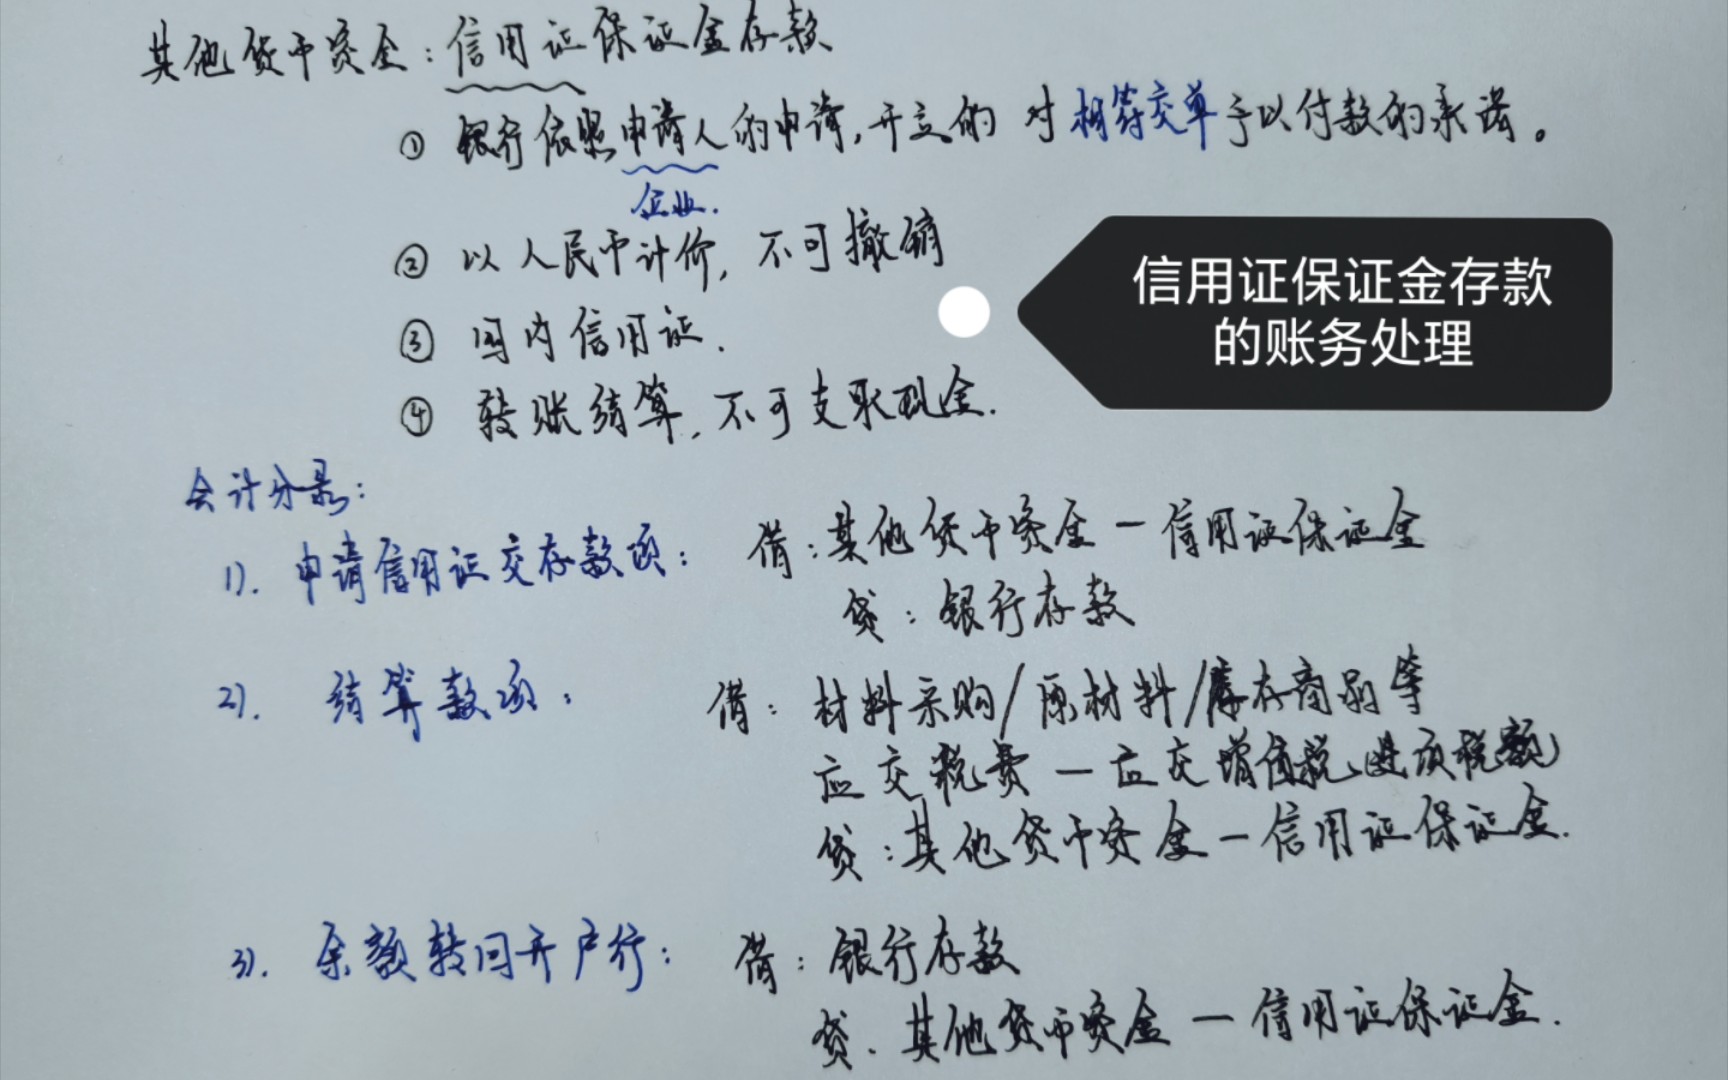 其他货币资金：信用证保证金存款
① 银行依照申请人的申请，开立的 对相符交单予以付款的承诺。
企业.
② 以人民币计价，不可撤销
信用证保证金存款
的账务处理
③ 国内信用证.
④ 转账结算，不可支取现金.
会计分录：
1). 申请信用证交存款项： 借：其他货币资金—信用证保证金
贷：银行存款
2). 结算款项： 借：材料采购/原材料/库存商品等
应交税费—应交增值税(进项税额)
贷：其他货币资金—信用证保证金.
3). 余额转回开户行： 借：银行存款
贷. 其他货币资金—信用证保证金.